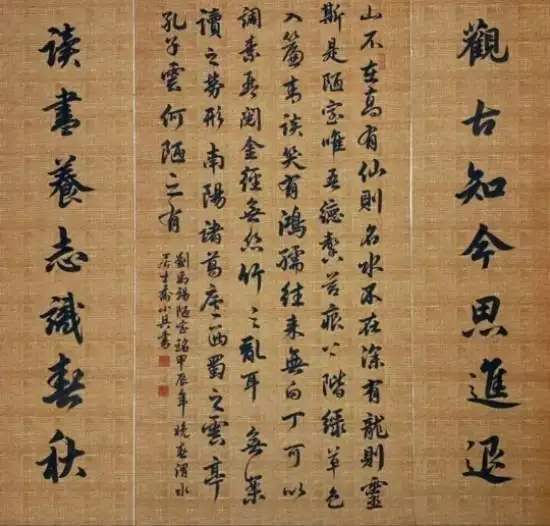 觀古知今思進退
山不在高有仙則名水不在深有龍則靈
斯是陋室唯吾德馨苔痕上階綠草色
入簾青談笑有鴻儒往來無白丁可以
調素琴閱金經無絲竹之亂耳無案
讀之勞形南陽諸葛廬西蜀之雲亭
孔子雲何陋之有
劉禹錫陋室銘甲辰年曉春渭水
小兵書
读書養志識春秋